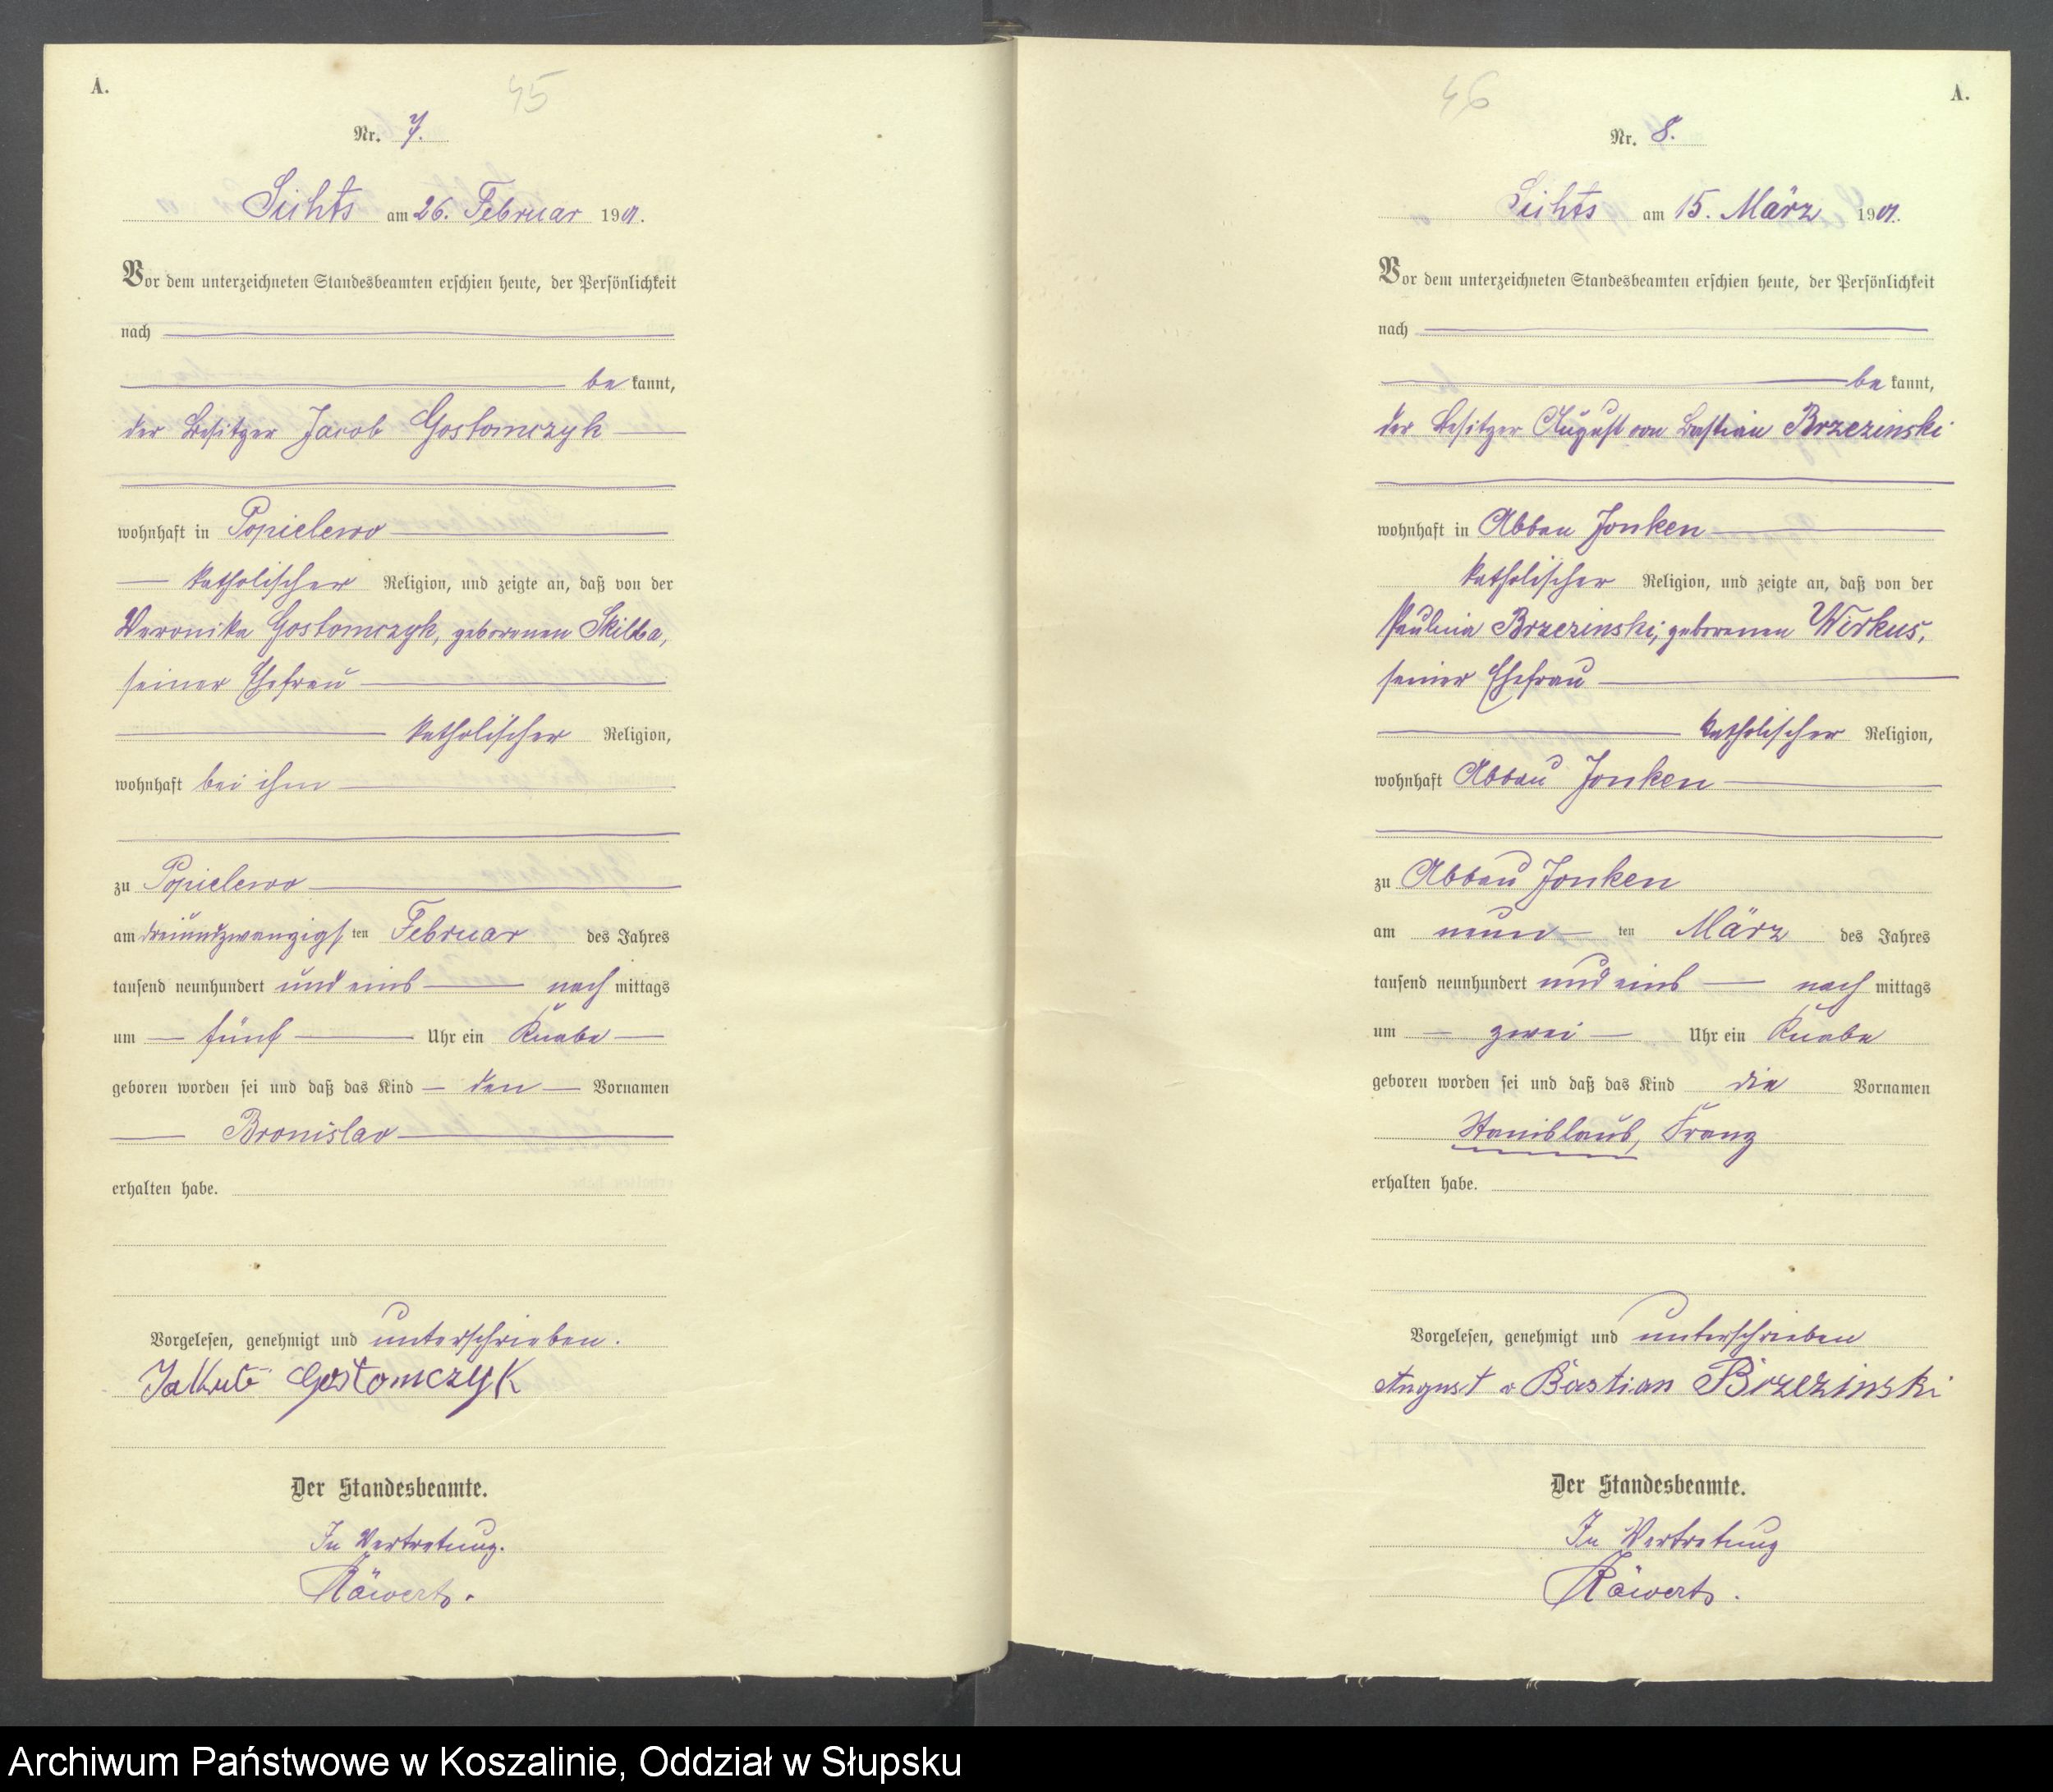 A.
45
Nr. 7.
Lichts am 26. Februar 1901.
Vor dem unterzeichneten Standesbeamten erschien heute, der Persönlichkeit
nach
be kannt,
der Besitzer Jacob Gostomczyk
wohnhaft in Popielewo
katholischer Religion, und zeigte an, daß von der
Veronika Gostomczyk, geborenen Skibba,
seiner Ehefrau
katholischer Religion,
wohnhaft bei ihm
zu Popielewo
am dreiundzwanzigsten Februar des Jahres
tausend neunhundert und eins nach mittags
um fünf Uhr ein Knabe
geboren worden sei und daß das Kind den Vornamen
Bronislav
erhalten habe.
Vorgelesen, genehmigt und unterschrieben.
Jakub Gostomczyk
Der Standesbeamte.
In Vertretung.
46
A.
Nr. 8.
Lichts am 15. März 1901.
Vor dem unterzeichneten Standesbeamten erschien heute, der Persönlichkeit
nach
be kannt,
der Besitzer August von Bastian Brzezinski
wohnhaft in Abbau Jonken
katholischer Religion, und zeigte an, daß von der
Paulina Brzezinski, geborenen Wirkus,
seiner Ehefrau
katholischer Religion,
wohnhaft Abbau Jonken
zu Abbau Jonken
am neun ten März des Jahres
tausend neunhundert und eins nach mittags
um zwei Uhr ein Knabe
geboren worden sei und daß das Kind die Vornamen
Stanislaus, Franz
erhalten habe.
Vorgelesen, genehmigt und unterschrieben
August v Bastian Brzezinski
Der Standesbeamte.
In Vertretung
Archiwum Państwowe w Koszalinie, Oddział w Słupsku